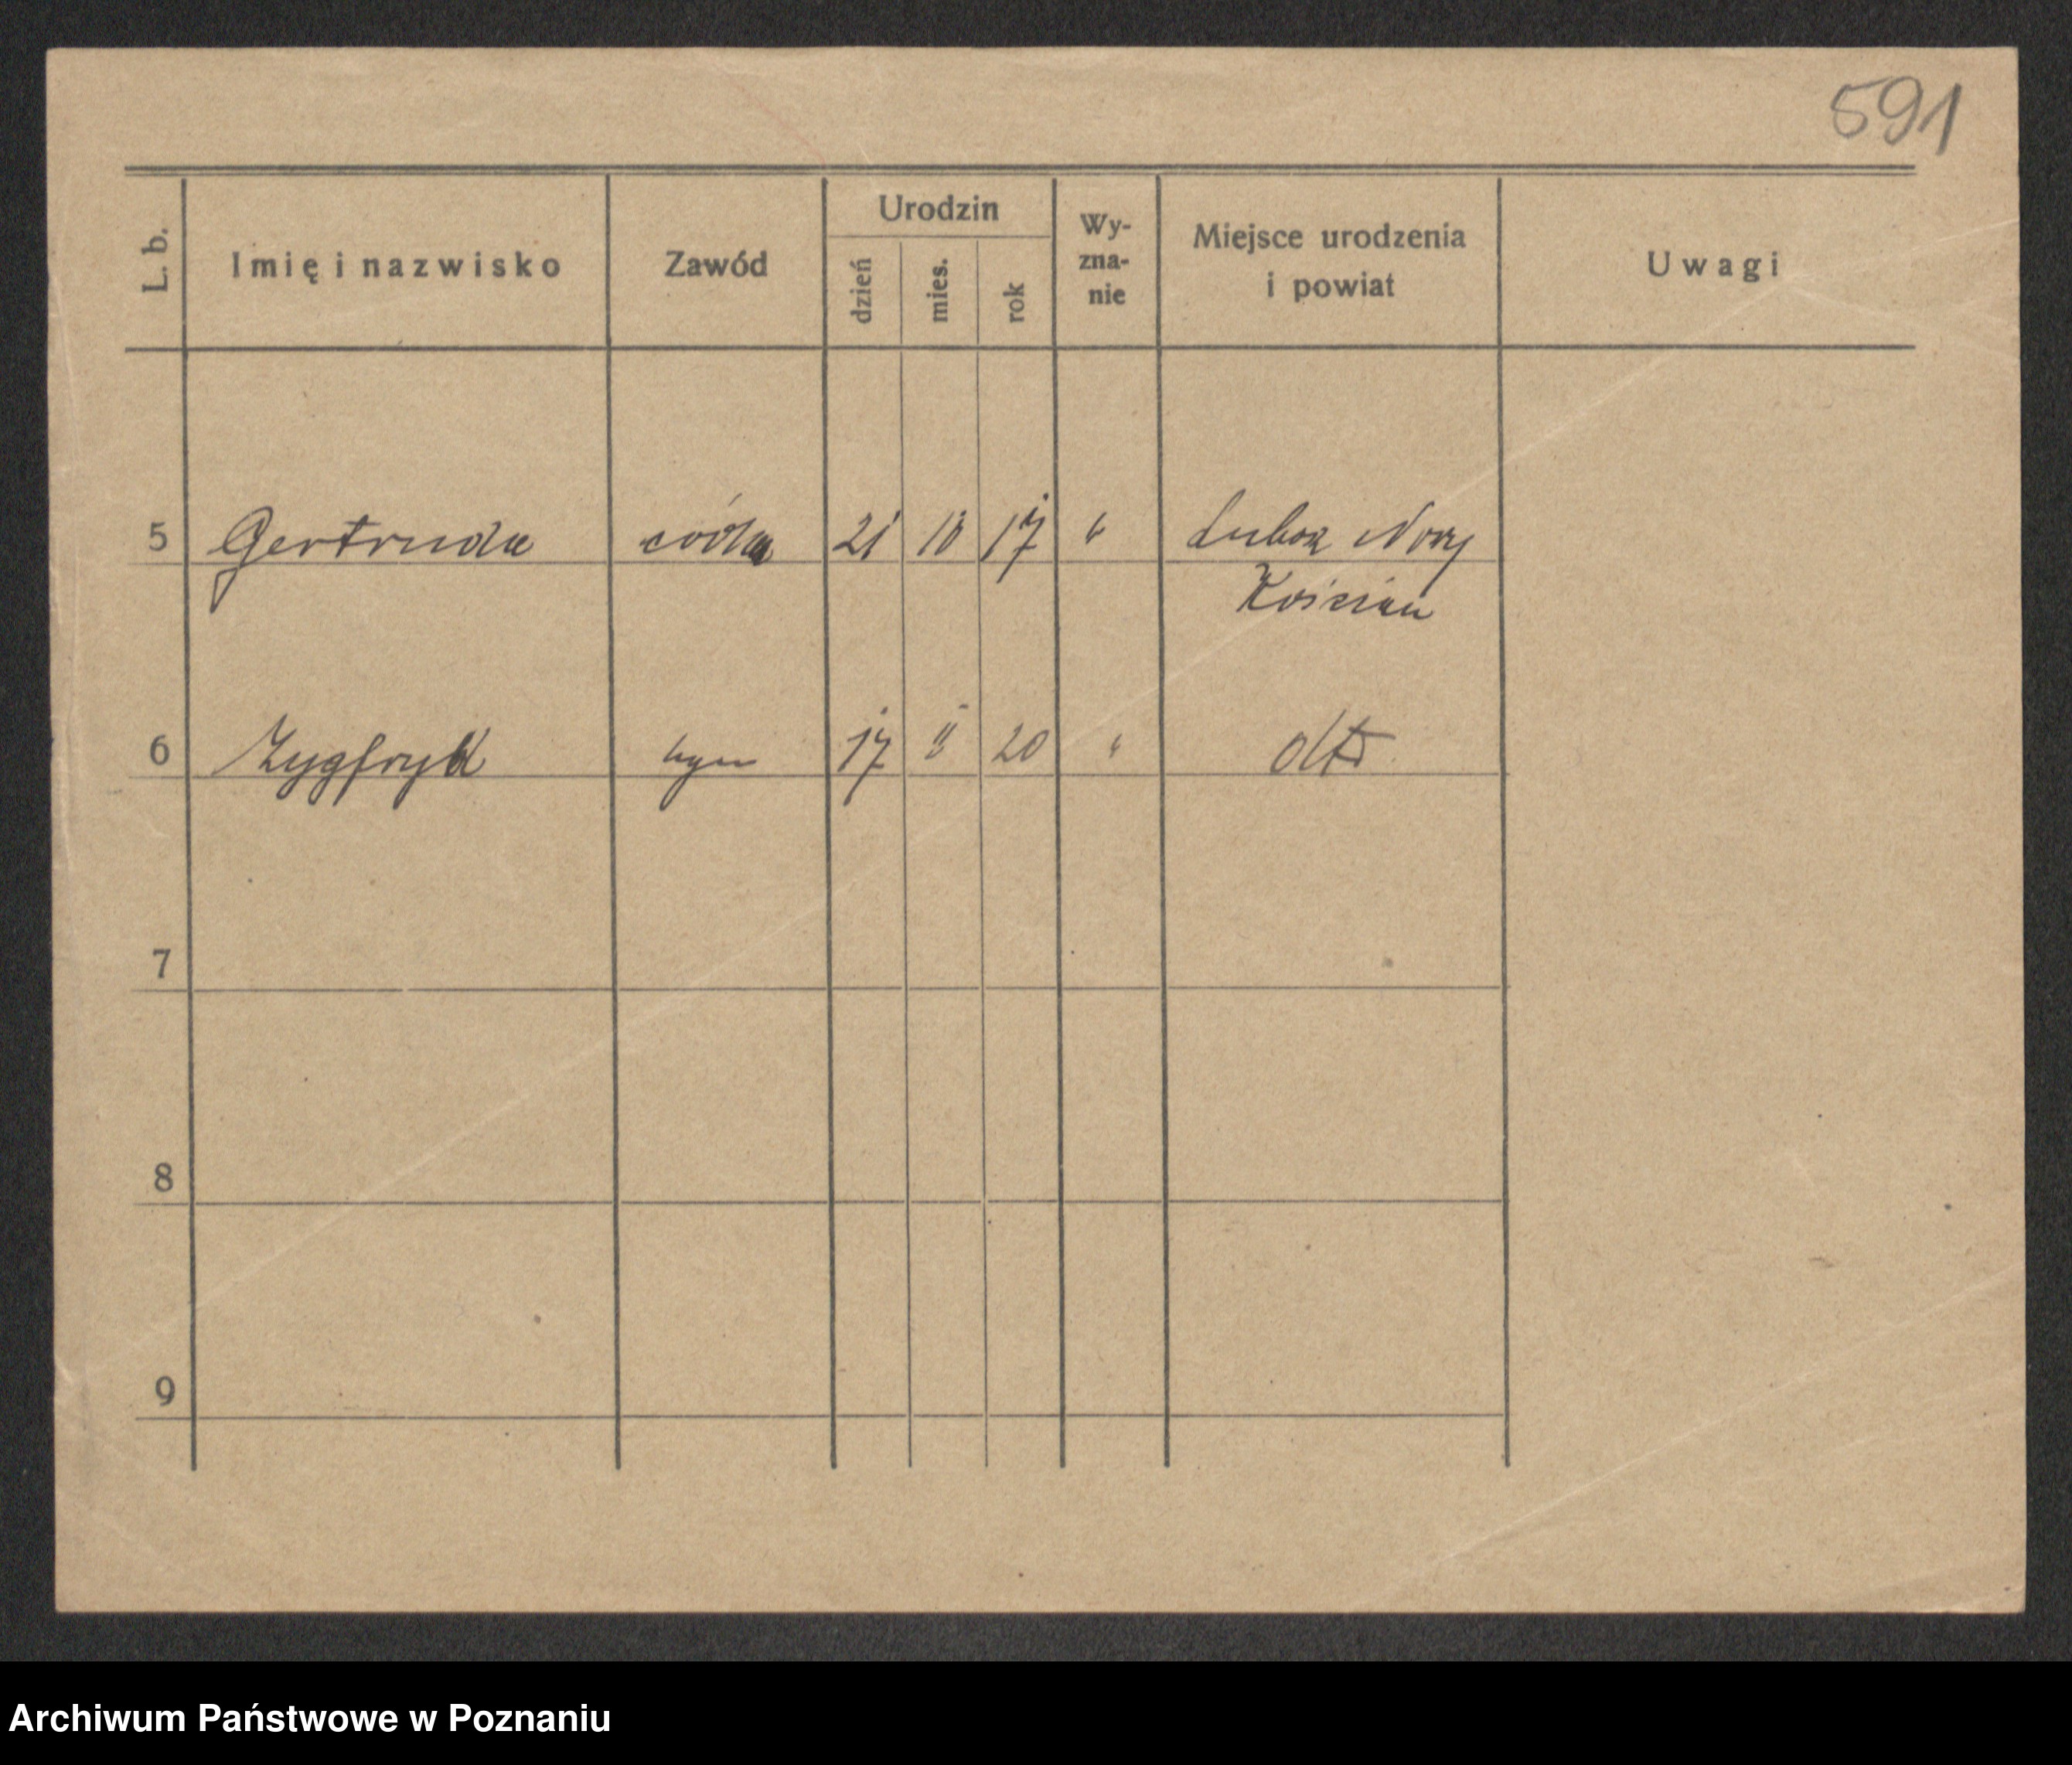 591
L. b.
Imię i nazwisko
Zawód
Urodzin
dzień
mies.
rok
Wy-
zna-
nie
Miejsce urodzenia
i powiat
Uwagi
5 Gertruda córka 21 10 17 " Lubosz Nowy
Kościan
6 Zygfryd syn 17 20 " dtto
7
8
9
Archiwum Państwowe w Poznaniu